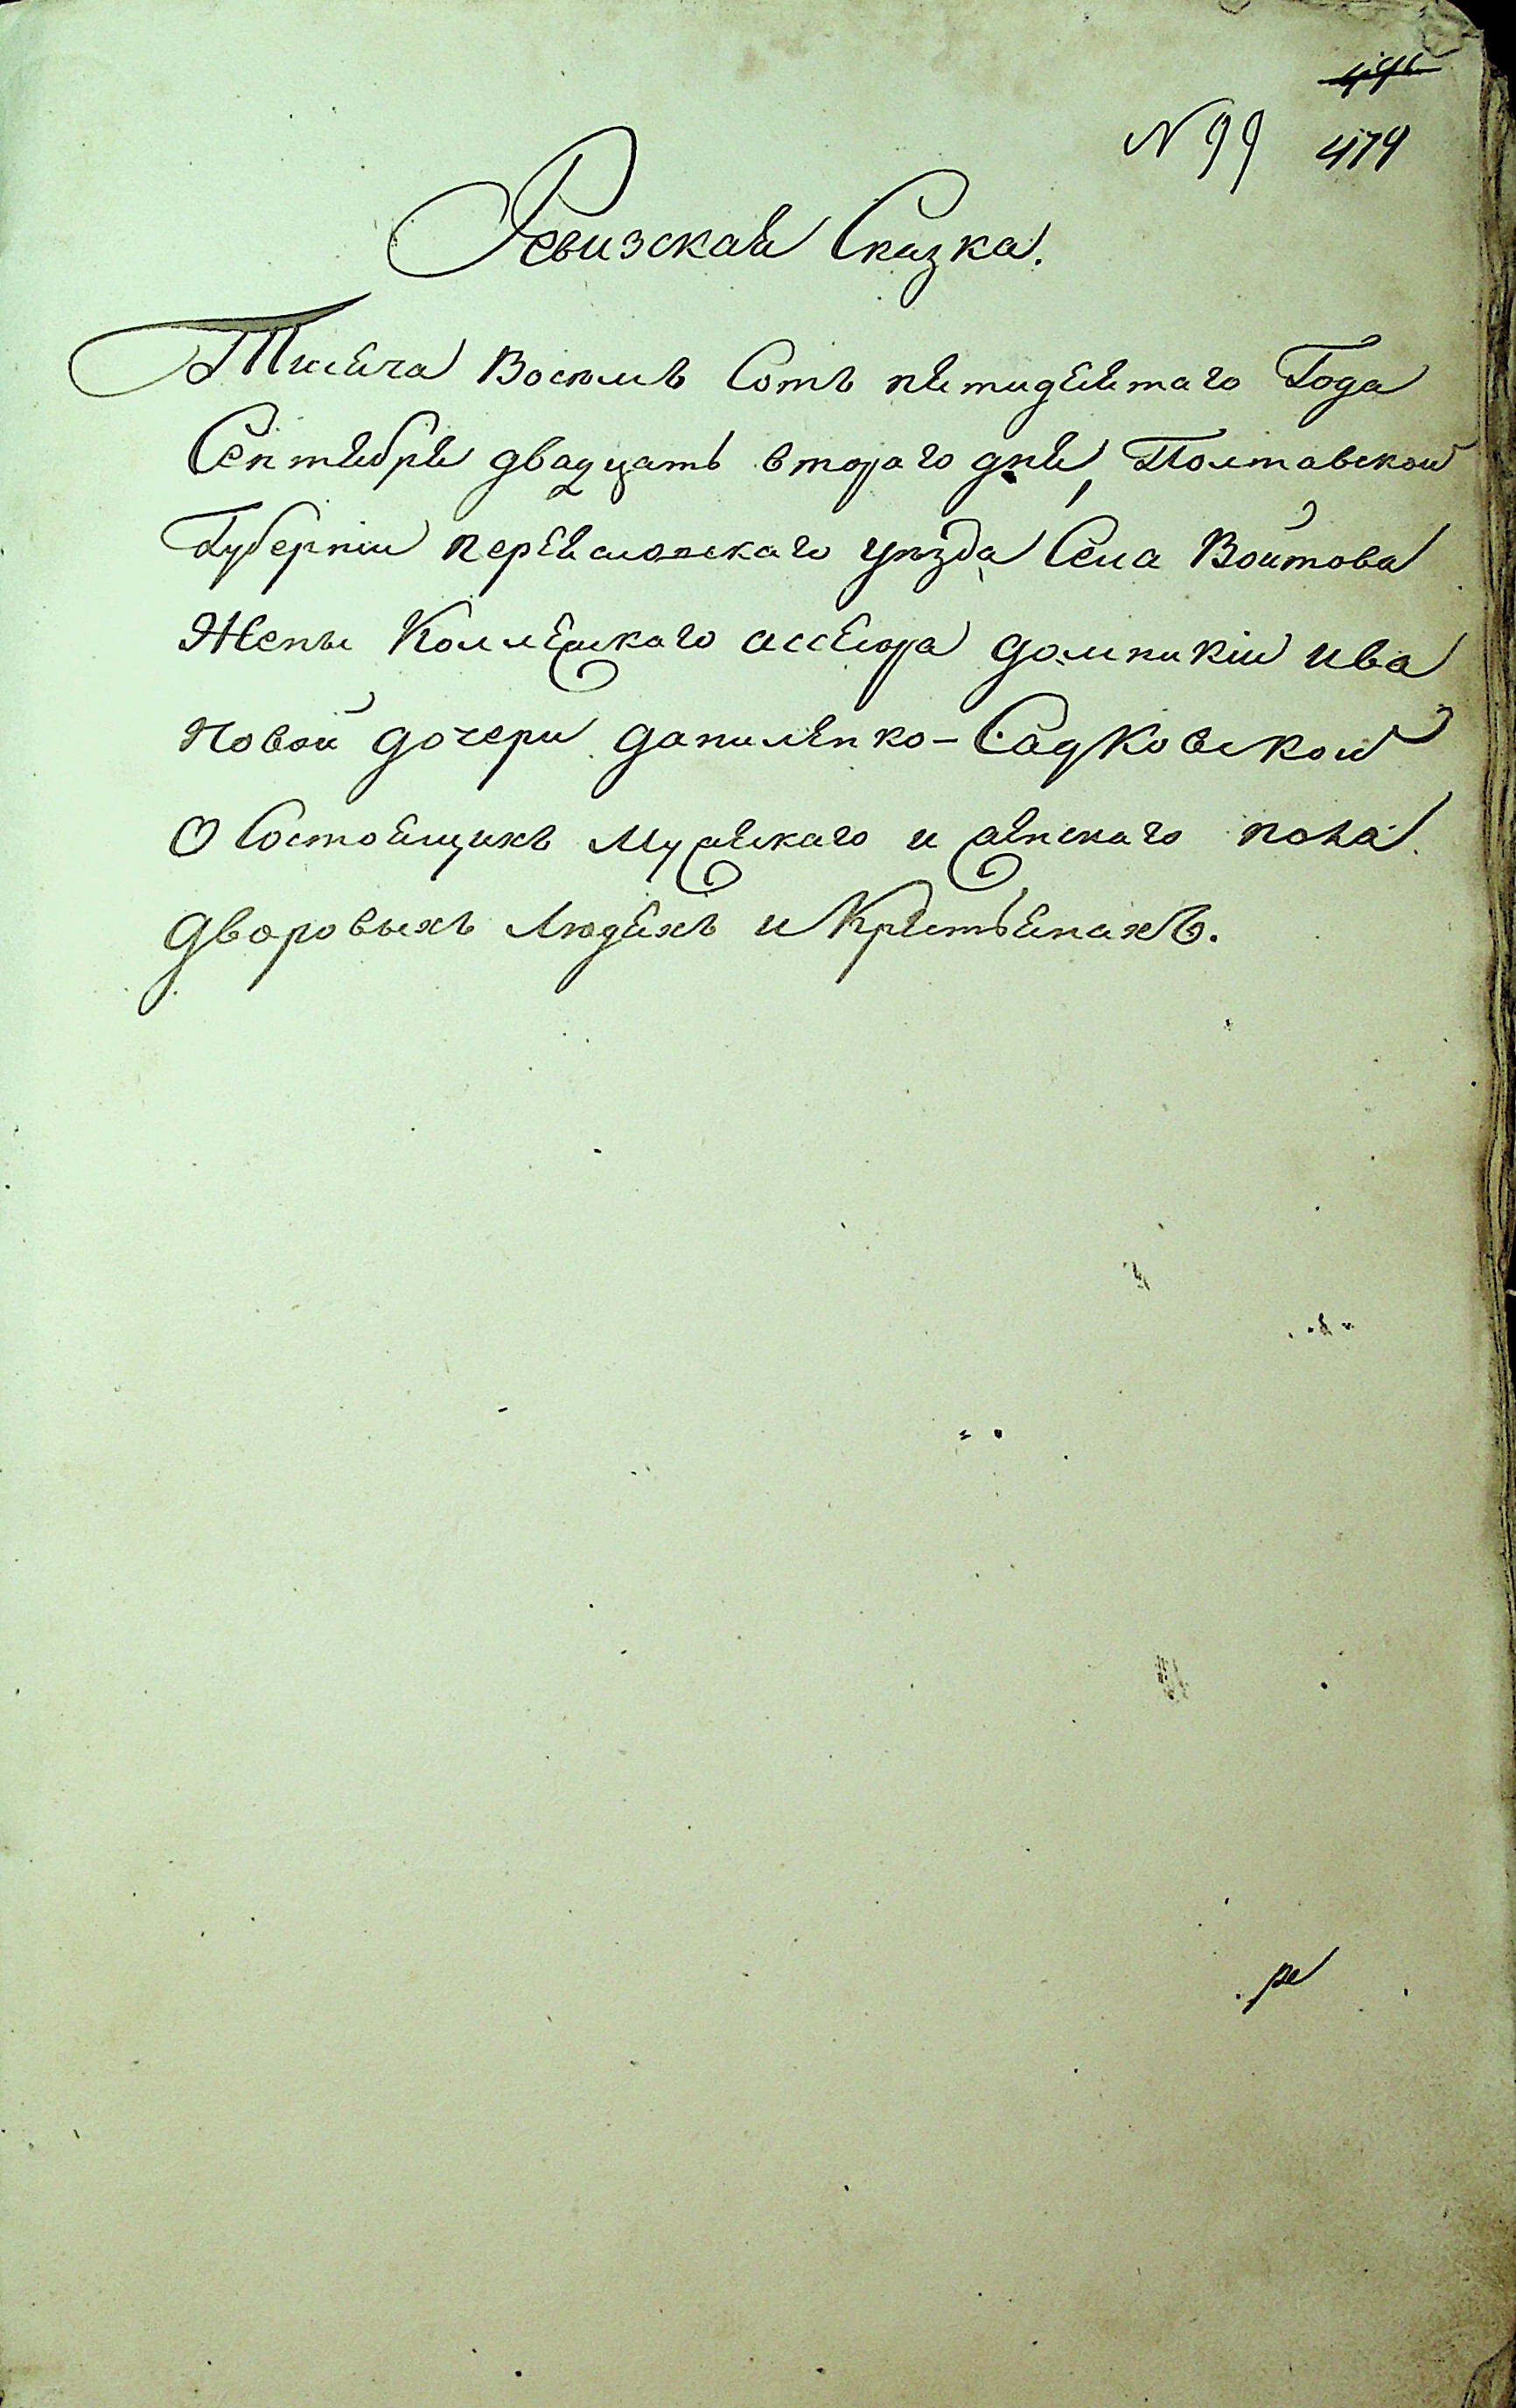 № 99 479
Ревизская Сказка.
Тисяча Восемь Сотъ пятидесятаго Года
Сентября двадцать втораго дня, Полтавской
Губерніи переяславскаго уезда Села Войтова
Жены Коллежскаго ассесора домникіи ива
новой дочери даниленко-Садковской
О Состоящихъ мужескаго и женскаго пола
дворовыхъ людяхъ и Крестьянахъ.
ре